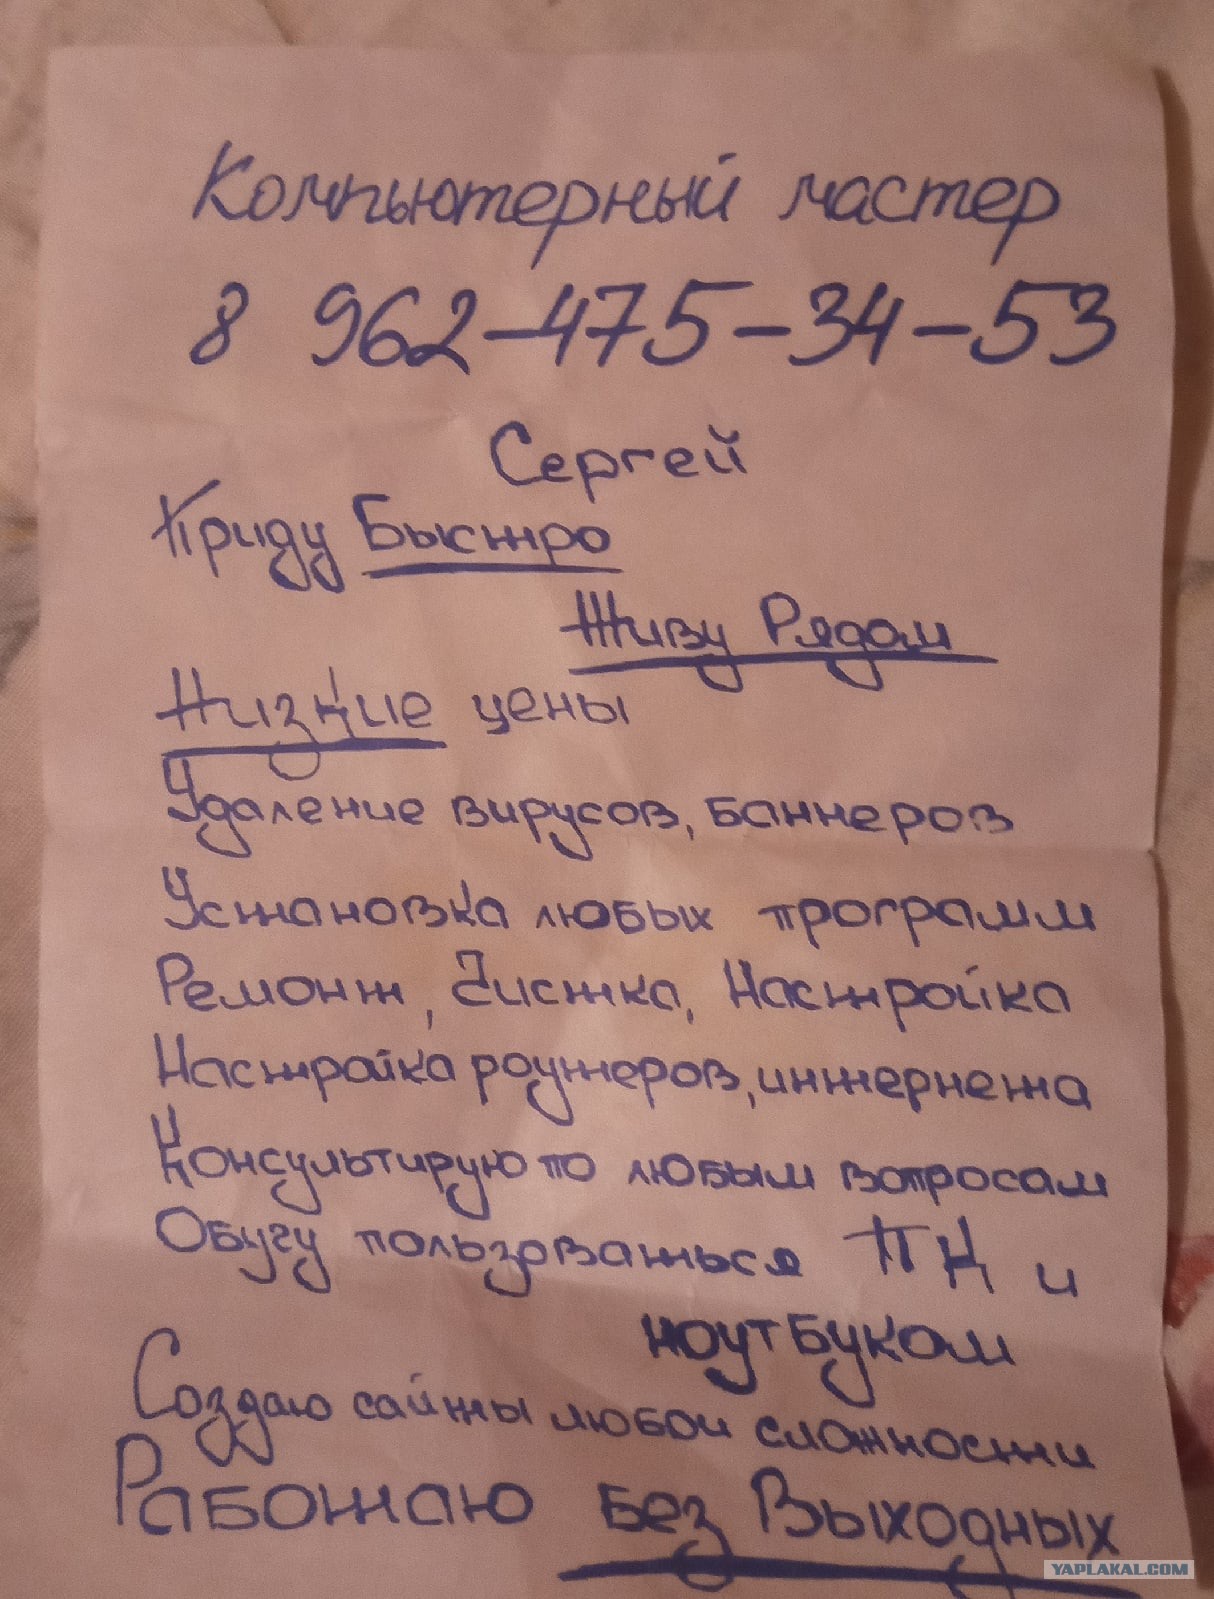 Компьютерный мастер
8 962-475-34-53
Сергей
Приду Быстро
Живу Рядом
Низкие цены
Удаление вирусов, баннеров
Установка любых программ
Ремонт, Чистка, Настройка
Настройка роутеров, интернета
Консультирую по любым вопросам
Обучу пользоваться ПК и
ноутбуком
Создаю сайты любои сложности
Работаю Без Выходных
YAPLAKAL.COM